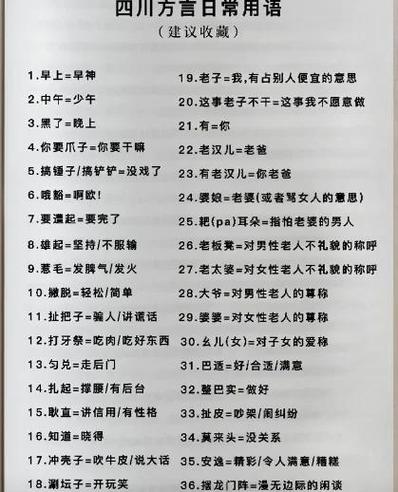 四川方言日常用语
（建议收藏）
1.早上=早神
2.中午=少午
3.黑了=晚上
4.你要爪子=你要干嘛
5.搞锤子/搞铲铲=没戏了
6.哦豁=啊欧!
7.要遭起=要完了
8.雄起=坚持/不服输
9.惹毛=发脾气/发火
10.撇脱=轻松/简单
11.扯把子=骗人/讲谎话
12.打牙祭=吃肉/吃好东西
13.匀兑=走后门
14.扎起=撑腰/有后台
15.耿直=讲信用/有性格
16.知道=晓得
17.冲壳子=吹牛皮/说大话
18.涮坛子=开玩笑
19.老子=我,有占别人便宜的意思
20.这事老子不干=这事我不愿意做
21.有=你
22.老汉儿=老爸
23.有老汉儿=你老爸
24.婆娘=老婆(或者骂女人的意思)
25.耙(pa)耳朵=指怕老婆的男人
26.老板凳=对男性老人不礼貌的称呼
27.老太婆=对女性老人不礼貌的称呼
28.大爷=对男性老人的尊称
29.婆婆=对女性老人的尊称
30.幺儿(女)=对子女的爱称
31.巴适=好/合适/满意
32.整巴实=做好
33.扯皮=吵架/闹纠纷
34.莫来头=没关系
35.安逸=精彩/令人满意/糟糕
36.摆龙门阵=漫无边际的闲谈